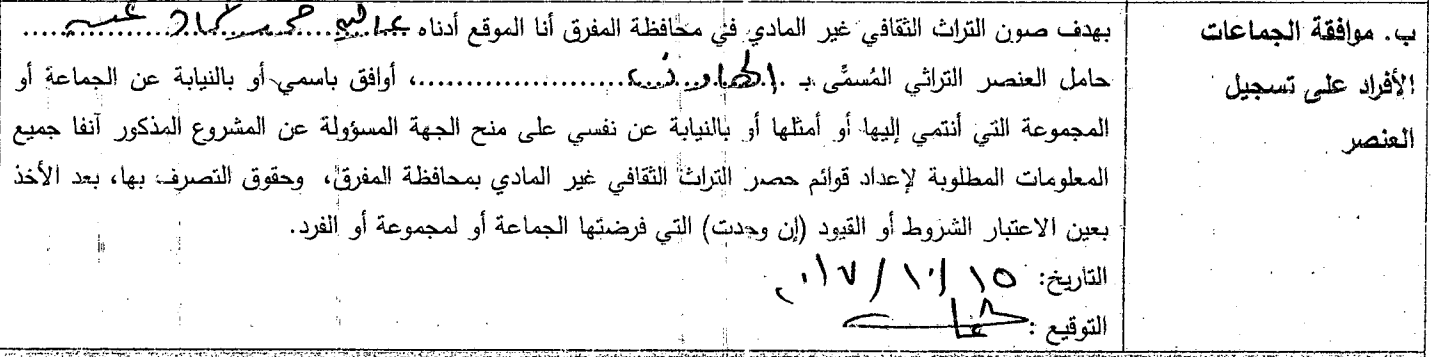 ب. موافقة الجماعات
الأفراد على تسجيل
العنصر
بهدف صون التراث الثقافي غير المادي في محافظة المفرق أنا الموقع أدناه
حامل العنصر التراثي المُسمَّى بـ ........................، أوافق باسمي أو بالنيابة عن الجماعة أو
المجموعة التي أنتمي إليها أو أمثلها أو بالنيابة عن نفسي على منح الجهة المسؤولة عن المشروع المذكور آنفا جميع
المعلومات المطلوبة لإعداد قوائم حصر التراث الثقافي غير المادي بمحافظة المفرق، وحقوق التصرف بها، بعد الأخذ
بعين الاعتبار الشروط أو القيود (إن وجدت) التي فرضتها الجماعة أو لمجموعة أو الفرد.
التاريخ: ١٥/١٠/٢٠١٧
التوقيع :